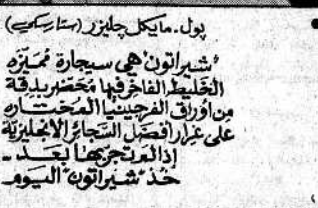 پول.مايكل جليزر (ستارسكي)
"شيراتون" هي سيجارة مُمَيّزه
الخليط الفاخر فيها مُحَضر بدقة
من أوراق الفرجينيا المُختاره
على غرار أفضل السجائر الإنجليزية
إذا لم تجربها بعد ـ
خذ "شيراتون" اليوم